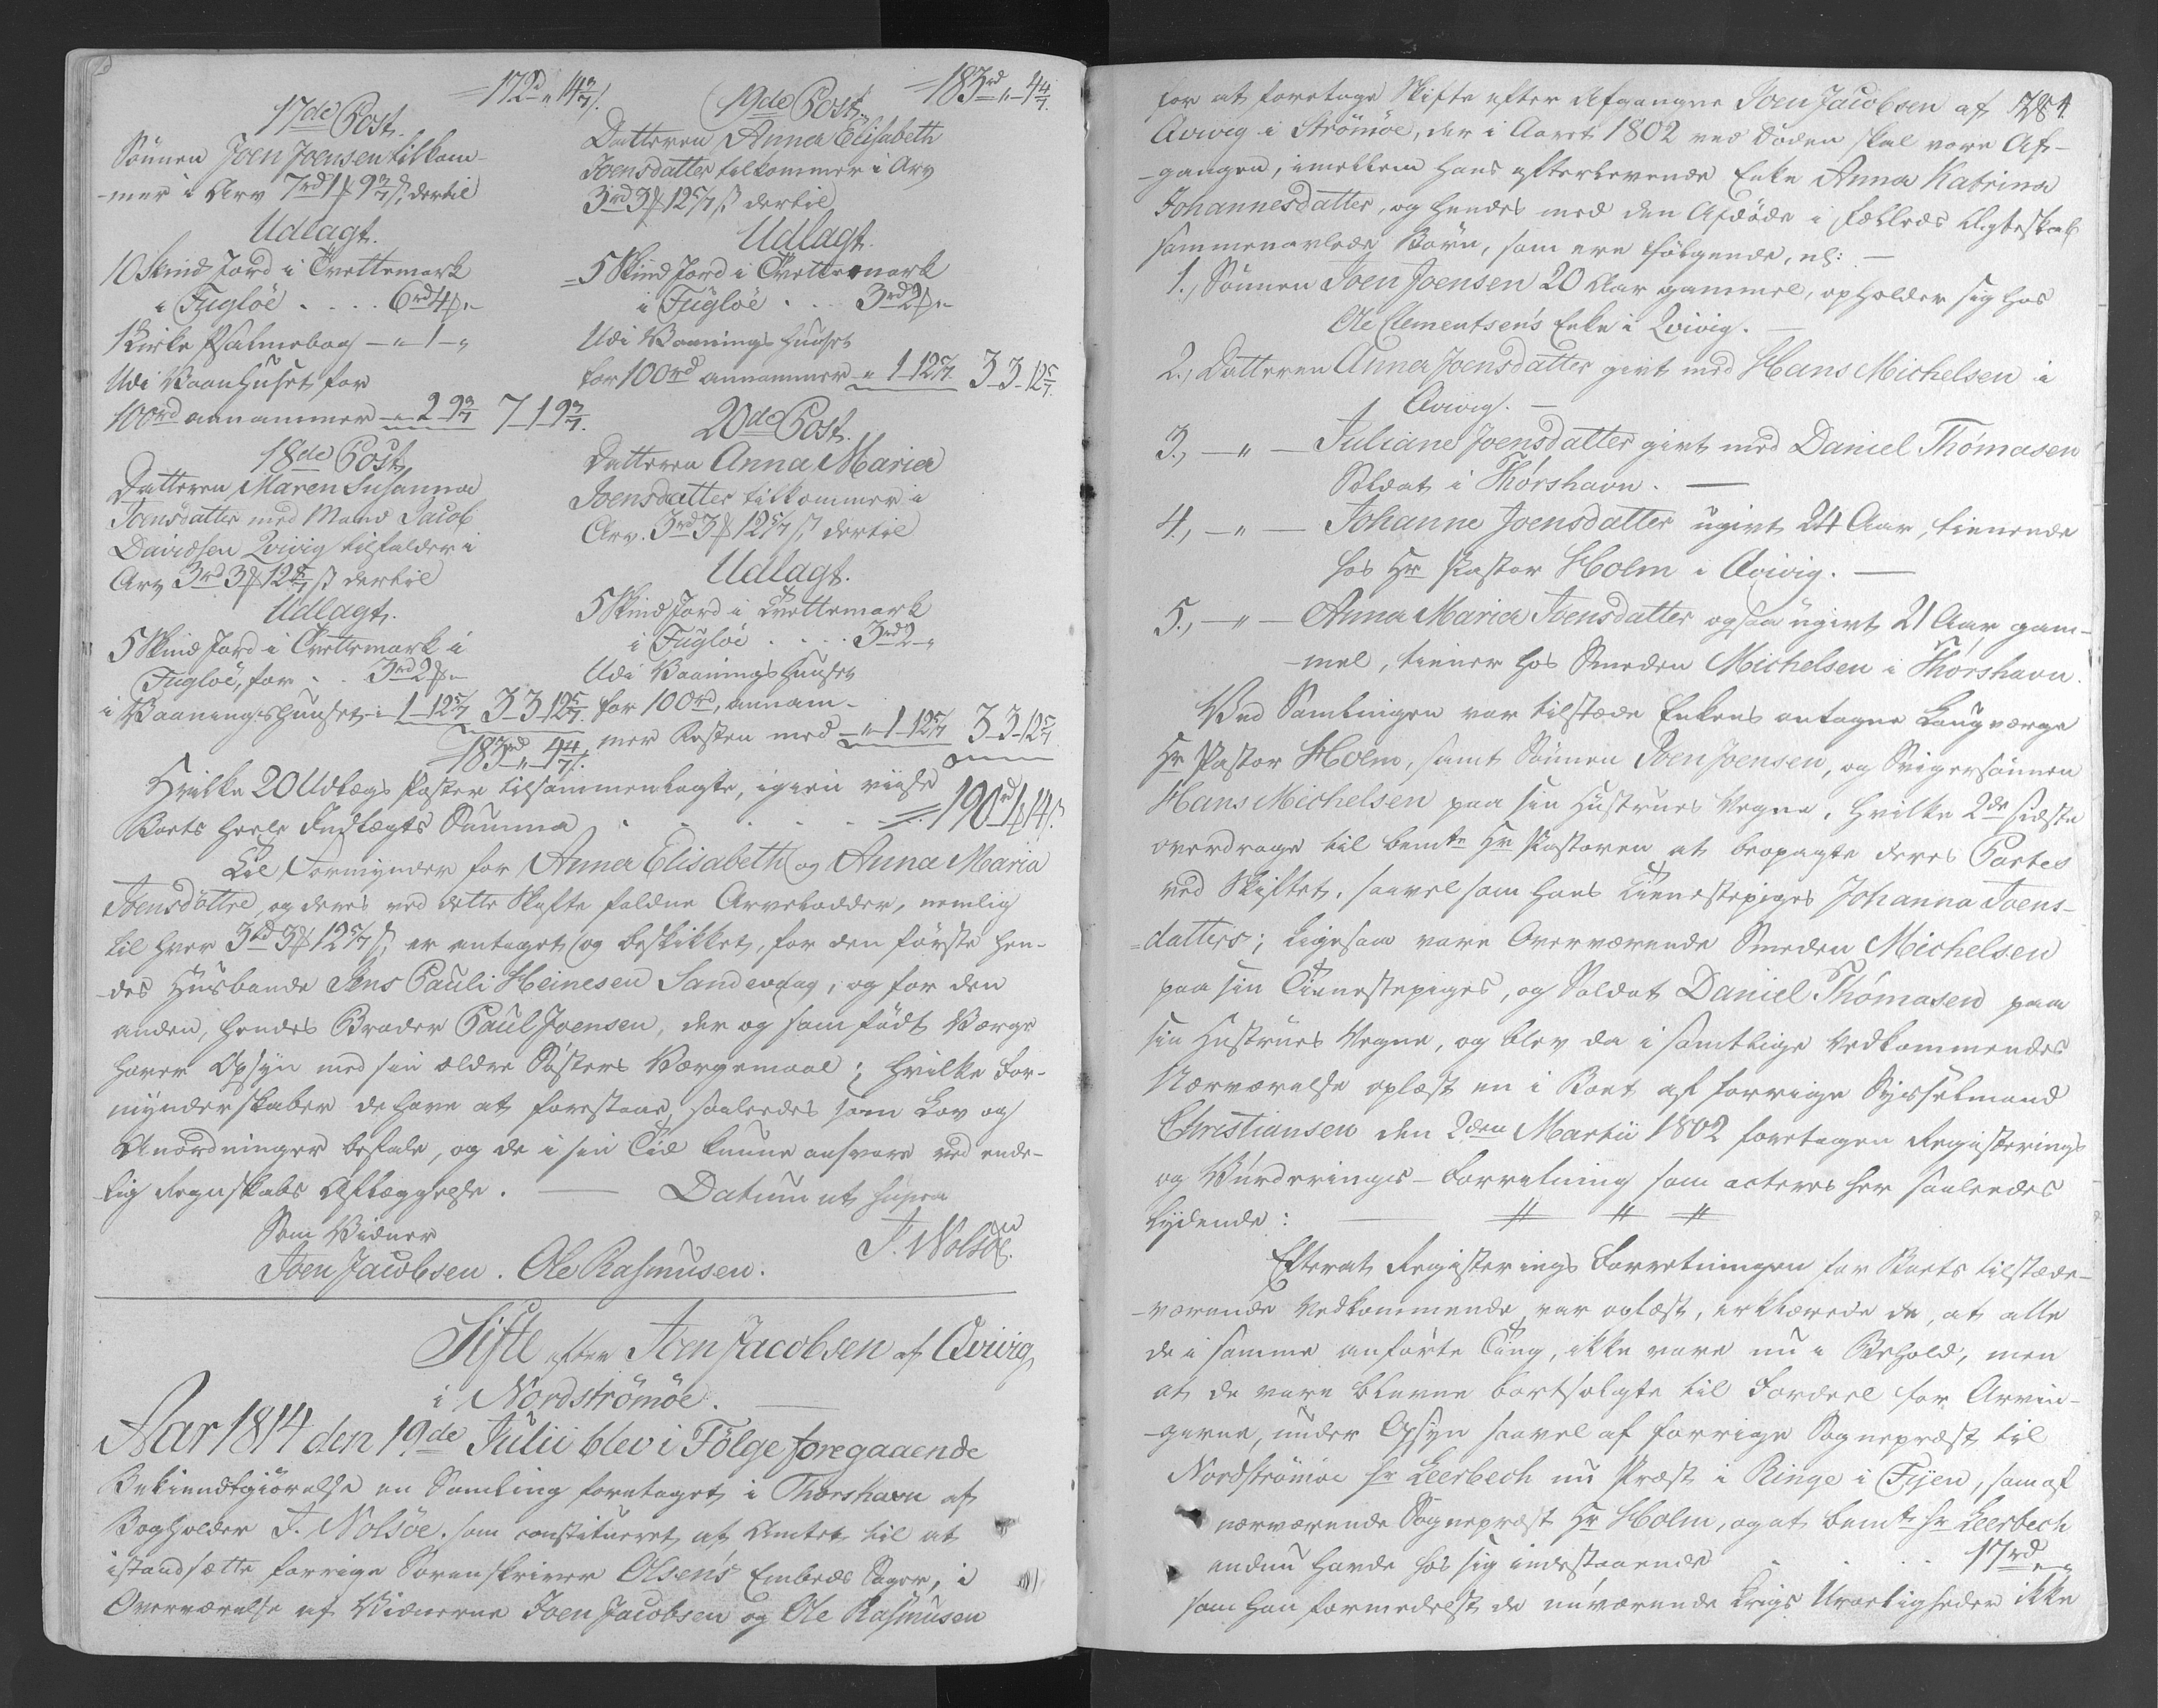 172rd „ 14 3/7 ß.
17de Post.
Sönnen Joen Joensen tilkom-
-mer i Arv 7rd 1 ₰ 9 3/7 ß, dertil
Udlagt.
10 Skind Jord i Qvettemark
i Fugloe . . . . 6rd 4 ₰ „
1 Kirke Psalmebog — „ 1 — „
Udi Vaanhuset for
100rd annammer — „ 2 9 3/7 7 — 1 — 9 3/7.
18de Post
Datteren Maren Susanna
Joensdatter med Mand Jacob
Davidsen Qvivig tilfalder i
Arv 3rd 3 ₰ 12 5/7 ß dertil
Udlagt.
5 Skind Jord i Qvettemark i
Fugloe, for . . 3rd 2 ₰ „
i Vaaningshuuset „ 1 — 12 5/7 3 — 3 — 12 5/7.
183rd „ 4 4/7 ß.
183rd „ 4 4/7.
19de Post.
Datteren Anna Elisabeth
Joensdatter tilkommer i Arv
3rd 3 ₰ 12 5/7 ß dertil
Udlagt.
5 Skind Jord i Qvettemark
i Fugloe . . . 3rd 2 ₰ „
Udi Vaanings Huuset
for 100rd annammer „ 1 — 12 5/7 3 — 3 — 12 5/7.
20de Post.
Datteren Anna Maria
Joensdatter tilkommer i
Arv. 3rd 3 ₰ 12 5/7 ß, dertil
Udlagt.
5 Skind Jord i Qvettemark
i Fugloe . . . . 3rd 2 — „
Udi Vaanings Huuset
for 100rd, annam-
mer Resten med — „ 1 — 12 5/7 3 — 3 — 12 5/7
Hvilke 20 Udlægs Poster tilsammenlagte, igien viise
Boets heele Indtægts Summa . . . . . 190rd 1 ₰ 14 ß.
Til Formynder for Anna Elisabeth og Anna Maria
Joensdöttre, og deres ved dette Skifte faldne Arvelodder, nemlig
til hver 3rd 3 ₰ 12 5/7 ß, er antaget og beskikket, for den förste hen-
-des Husbonde Jens Pauli Heinesen Sandevaag, og for den
anden, hendes Broder Paul Joensen, der og som födt Værge
haver Opsyn med sin ældre Sösters Værgemaal; hvilke For-
mynderskaber de have at forestaae, saaledes som Lov og
Anordninger befale, og de i sin Tid kunne ansvare ved ende-
-lig Regnskabs Aflæggelse. — Datum ut supra
Som Vidner J. Nolsöe.
Joen Jacobsen. Ole Rasmusen.
Sifte efter Joen Jacobsen af Qvivig
i Nordströmöe. —
Aar 1814 den 19de Julii blev i Fölge foregaaende
Bekiendtgiörelse en Samling foretaget i Thorshavn af
Bogholder J. Nolsöe, som constitueret af Amtet til at
istandsætte forrige Sorenskriver Olsen's Embeds Sager, i
Overværelse af Vidnerne Joen Jacobsen og Ole Rasmusen
for at foretage Skifte efter Afgangne Joen Jacobsen af
Qvivig i Strömöe, der i Aaret 1802 ved Döden skal være Af-
-gangen, imellem hans efterlevende Enke Anna Katrina
Johannesdatter, og hendes med den Afdöde i fælleds Ægteskab
sammenavlede Börn, som ere fölgende, nl: —
1., Sönnen Joen Joensen 20 Aar gammel, opholder sig hos
Ole Clementsen's Enke i Qvivig. —
2., Datteren Anna Joensdatter givt med Hans Michelsen i
Qvivig. —
3., — „ — Juliane Joensdatter givt med Daniel Thómasen
Soldat i Thórshavn. —
4., — „ — Johanne Joensdatter ugivt 24 Aar, tienende
hos Hr Pastor Holm i Qvivig. —
5., — „ — Anna Maria Joensdatter ogsaa ugivt 21 Aar gam-
-mel, tiener hos Smeden Michelsen i Thorshavn.
Ved Samlingen var tilstæde Enkens antagne Laugværge
Hr Pastor Holm, samt Sönnen Joen Joensen, og Svigersönnen
Hans Michelsen paa sin Hustrues Vegne, hvilke 2de sidste
overdrage til bemte Hr Pastoren at beopagte deres Partes
ved Skiftet, saavel som hans Tienestepiges Johanna Joens-
=datters; ligesaa vare Overværende Smeden Michelsen
paa sin Tienestepiges, og Soldat Daniel Thómasen paa
sin Hustrues Vegne, og blev da i samtlige Vedkommendes
Nærværelse oplæst en i Boet af forrige Sysselmand
Christiansen den 2den Martii 1802 foretagen Registerings
og Vurderings-Forretning som acteres her saaledes
lydende: — // // //
Efterat Registerings Forretningen for Boets tilstæde-
-værende Vedkommende var oplæst, erklærede de, at alle
de i samme anförte Ting, ikke vare nu i Behold, men
at de vare blevne bortsolgte til Fordeel for Arvin-
-gerne, under Opsyn saavel af forrige Sognepræst til
Nordströmöe Hr Leerbech nu Præst i Ringe i Fyen, som af
nærværende Sognepræst Hr Holm, og at bemte Hr Leerbech
endnu havde hos sig indestaaende . . . 17rd „ „
som han formedelst de nuværende Krigs Uroeligheder ikke